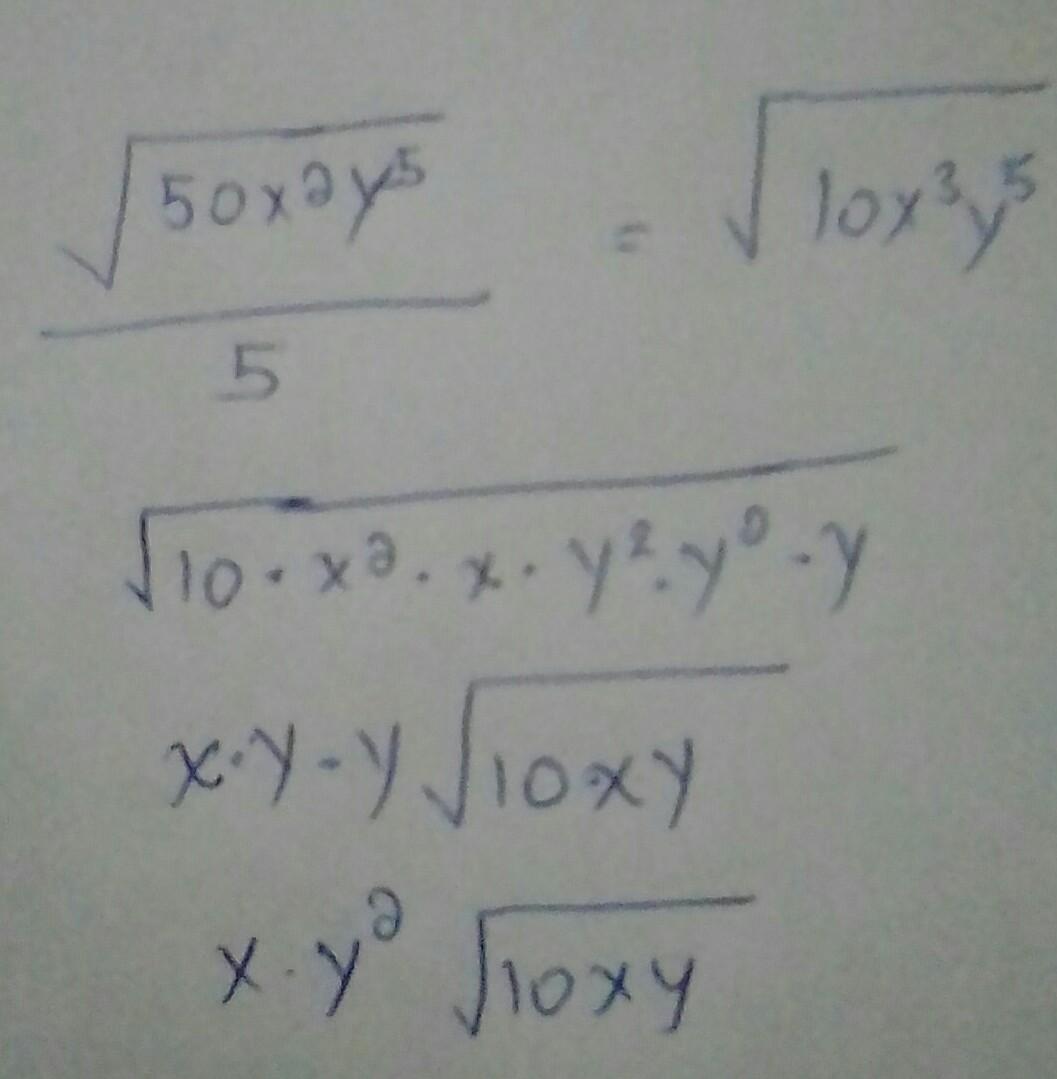 √50x²y⁵ / 5 = √10x³y⁵
√10 · x² · x · y² · y² · y
x · y · y √10xy
x · y² √10xy